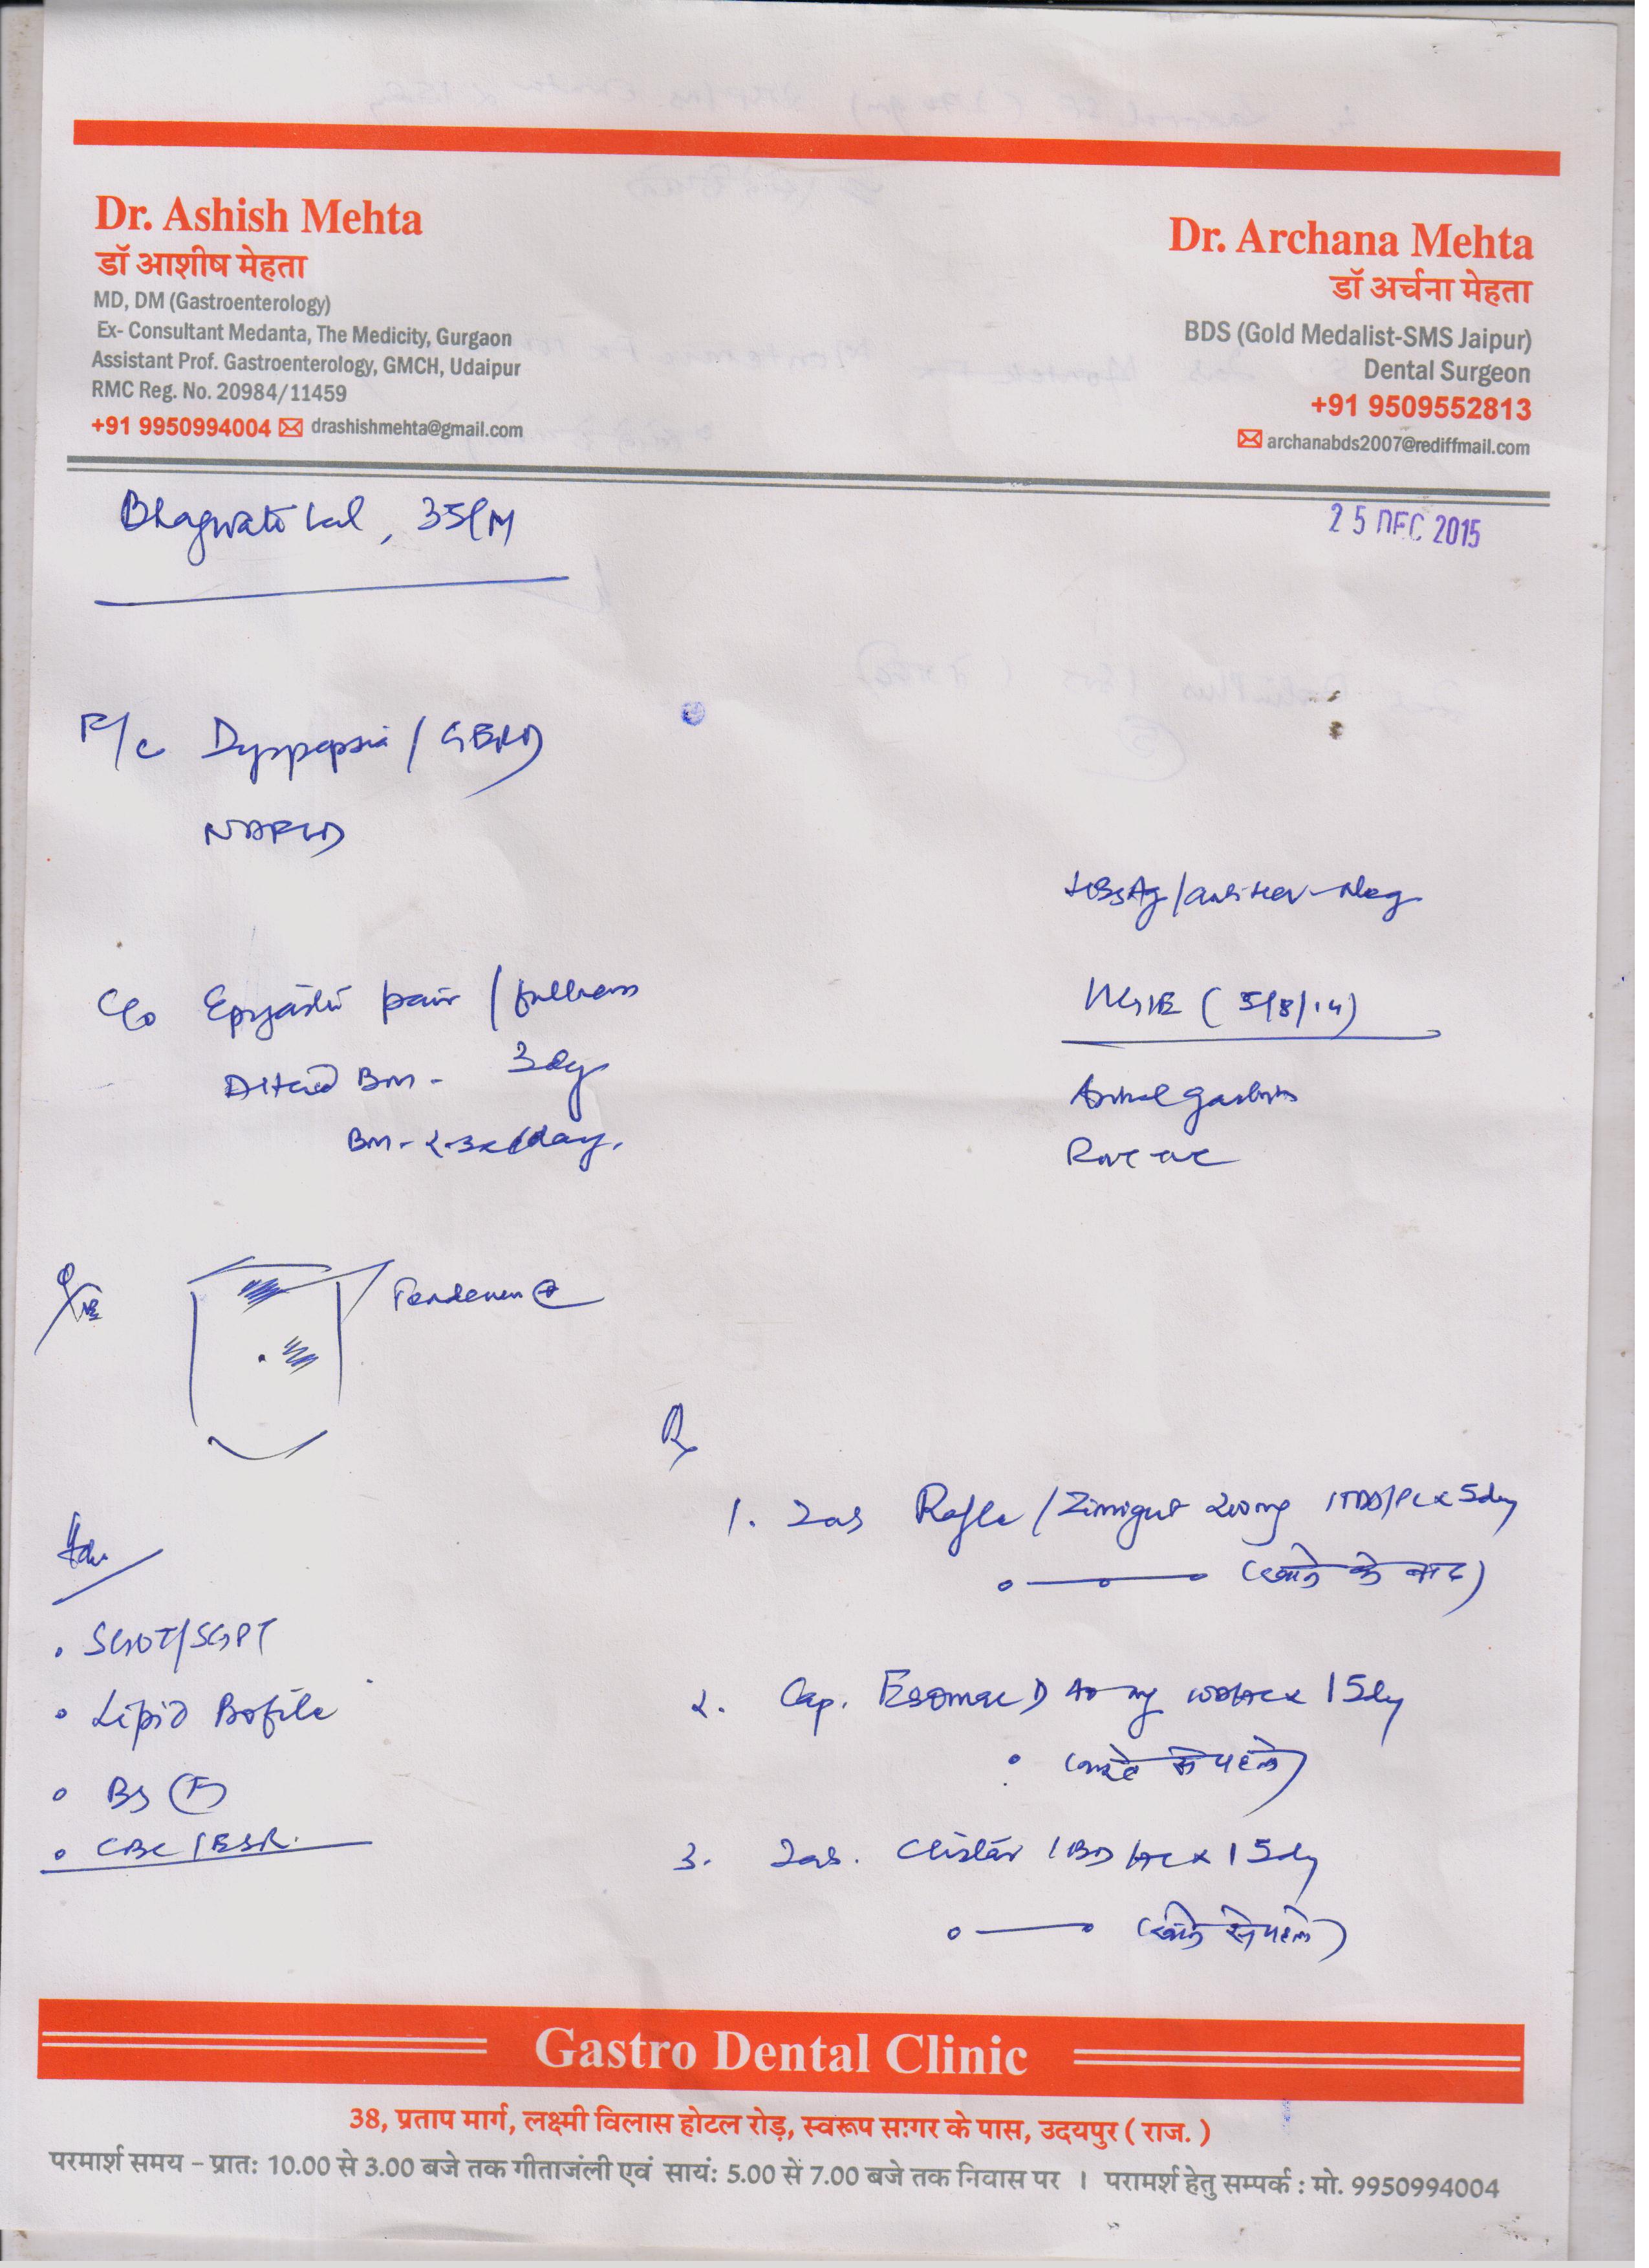 Dr. Ashish Mehta
डॉ आशीष मेहता
MD, DM (Gastroenterology)
Ex- Consultant Medanta, The Medicity, Gurgaon
Assistant Prof. Gastroenterology, GMCH, Udaipur
RMC Reg. No. 20984/11459
+91 9950994004 drashishmehta@gmail.com
Dr. Archana Mehta
डॉ अर्चना मेहता
BDS (Gold Medalist-SMS Jaipur)
Dental Surgeon
+91 9509552813
archanabds2007@rediffmail.com
Bhagwati Lal, 35/M
25 DEC 2015
F/c Dyspepsia / GERD
NAFLD
HBsAg / anti HCV - Neg
C/o Epigastric pain / fullness
Altered BM - 3 day
BM - 2-3x/day.
UGIE (5/8/14)
Antral gastritis
RUT -ve
O/E
Tenderness +
Rx
Adv.
. SGOT/SGPT
. Lipid Profile
. BS (F)
. CBC / ESR.
1. Tab 200mg 1TDS/PC x 5day
(खाने के बाद)
2. Cap. Esomac D 40 mg 1OD/AC x 15day
3. Tab. 1BD/AC x 15day
(खाने से पहले)
Gastro Dental Clinic
38, प्रताप मार्ग, लक्ष्मी विलास होटल रोड़, स्वरूप सागर के पास, उदयपुर ( राज. )
परमार्श समय – प्रातः 10.00 से 3.00 बजे तक गीताजंली एवं सायं: 5.00 से 7.00 बजे तक निवास पर । परामर्श हेतु सम्पर्क : मो. 9950994004